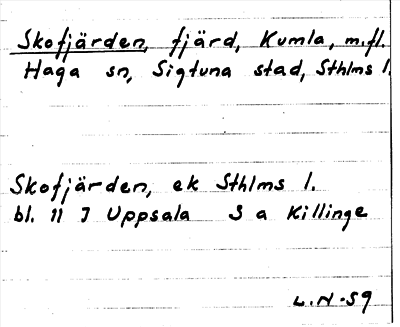 Skofjärden, fjärd, Kumla, m.fl.
Haga sn, Sigtuna stad, Sthlms l.
Skofjärden, ek Sthlms l.
bl. 11 I Uppsala S a Killinge
L.N-59